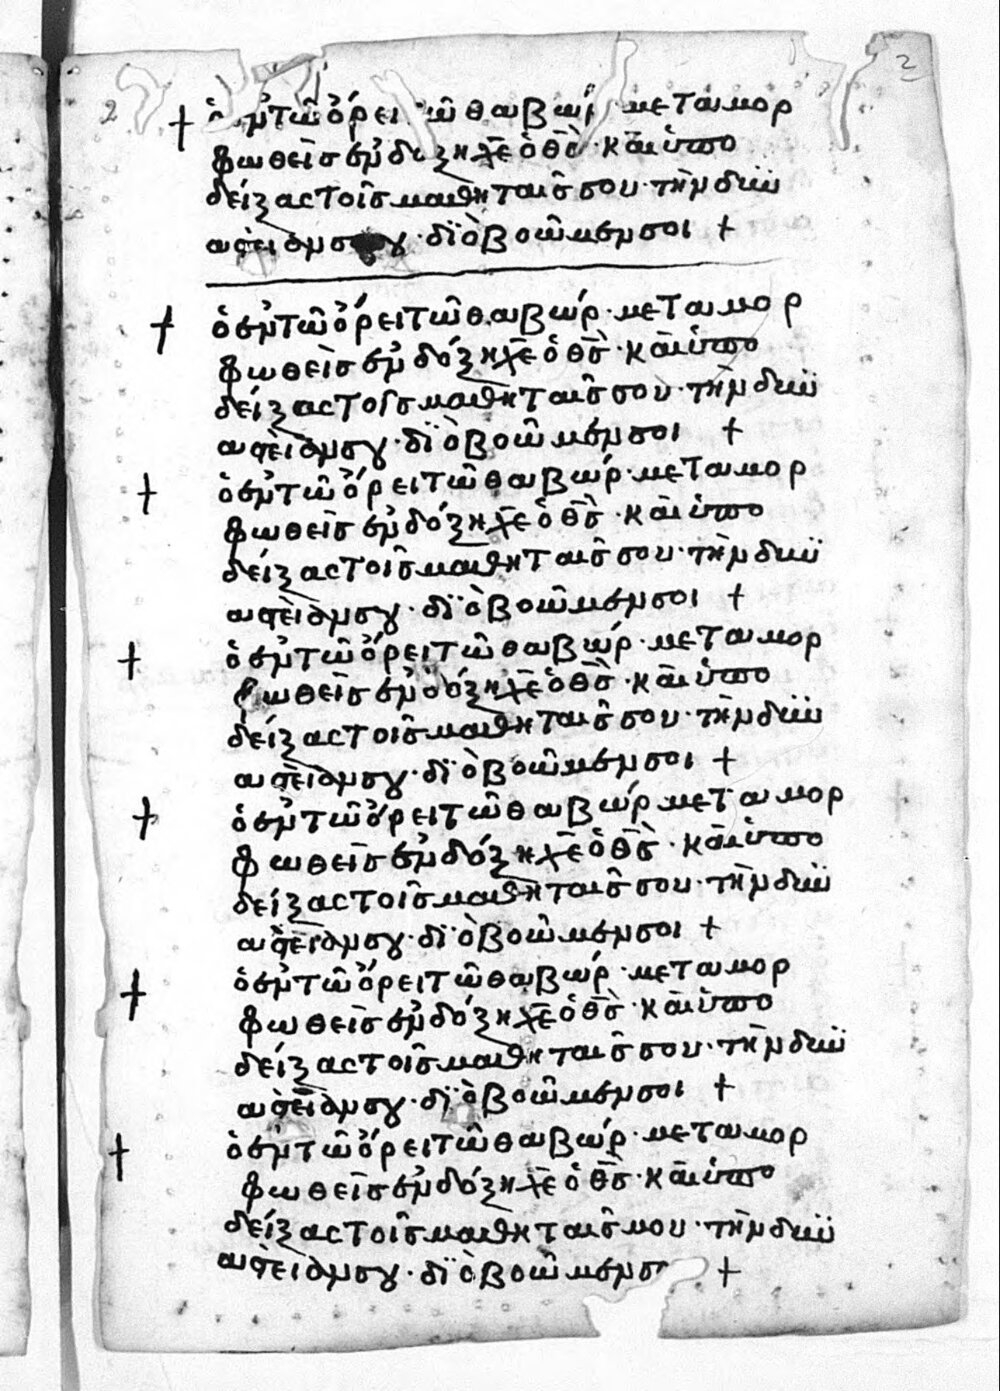 2
+ ὁ ἐν τῶ ὄρει τῶ θαβώρ · μεταμορ
φωθεὶς ἐν δόξη χ̅ε̅ ὁ θ̅ς̅ · καὶ ὑπο
δείξας τοῖς μαθηταῖς σου · τὴν δυν
αστείαν σου · διὸ βοῶμεν σοι +
+ ὁ ἐν τῶ ὄρει τῶ θαβώρ · μεταμορ
φωθεὶς ἐν δόξη χ̅ε̅ ὁ θ̅ς̅ · καὶ ὑπο
δείξας τοῖς μαθηταῖς σου · τὴν δυν
αστείαν σου · διὸ βοῶμεν σοι +
+ ὁ ἐν τῶ ὄρει τῶ θαβώρ · μεταμορ
φωθεὶς ἐν δόξη χ̅ε̅ ὁ θ̅ς̅ · καὶ ὑπο
δείξας τοῖς μαθηταῖς σου · τὴν δυν
αστείαν σου · διὸ βοῶμεν σοι +
+ ὁ ἐν τῶ ὄρει τῶ θαβώρ · μεταμορ
φωθεὶς ἐν δόξη χ̅ε̅ ὁ θ̅ς̅ · καὶ ὑπο
δείξας τοῖς μαθηταῖς σου · τὴν δυν
αστείαν σου · διὸ βοῶμεν σοι +
+ ὁ ἐν τῶ ὄρει τῶ θαβώρ μεταμορ
φωθεὶς ἐν δόξη χ̅ε̅ ὁ θ̅ς̅ · καὶ ὑπο
δείξας τοῖς μαθηταῖς σου · τὴν δυν
αστείαν σου · διὸ βοῶμεν σοι +
+ ὁ ἐν τῶ ὄρει τῶ θαβώρ · μεταμορ
φωθεὶς ἐν δόξη χ̅ε̅ ὁ θ̅ς̅ · καὶ ὑπο
δείξας τοῖς μαθηταῖς σου · τὴν δυν
αστείαν σου · διὸ βοῶμεν σοι +
+ ὁ ἐν τῶ ὄρει τῶ θαβώρ · μεταμορ
φωθεὶς ἐν δόξη χ̅ε̅ ὁ θ̅ς̅ · καὶ ὑπο
δείξας τοῖς μαθηταῖς μου · τὴν δυν
αστείαν σου · διὸ βοῶμεν σ +